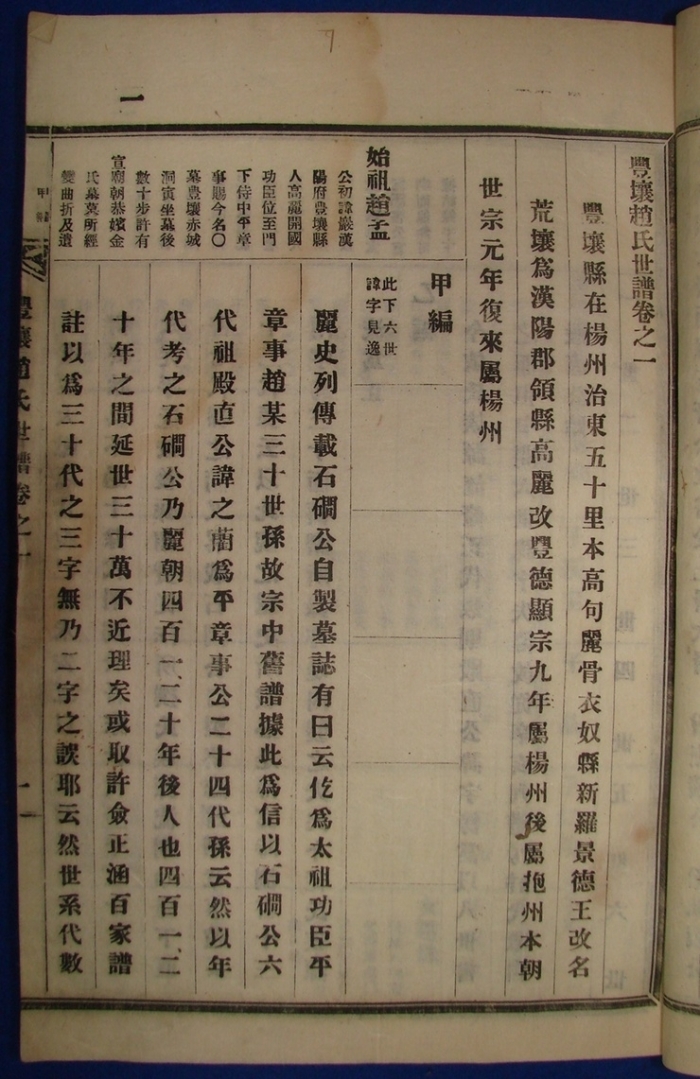 豐壤趙氏世譜卷之一
豐壤縣在楊州治東五十里本高句麗骨衣奴縣新羅景德王改名
荒壤爲漢陽郡領縣高麗改豐德顯宗九年屬楊州後屬抱州本朝
世宗元年復來屬楊州
甲編
始祖趙孟
此下六世
諱字見逸
公初諱巖漢
陽府豊壤縣
人高麗開國
功臣位至門
下侍中平章
事賜今名〇
墓豊壤赤城
洞寅坐墓後
數十步許有
宣廟朝恭嬪金
氏墓奠所經
雙曲折及遺
麗史列傳載石磵公自製墓誌有曰云仡爲太祖功臣平
章事趙某三十世孫故宗中舊譜據此爲信以石磵公六
代祖殿直公諱之藺爲平章事公二十四代孫云然以年
代考之石磵公乃麗朝四百一、二十年後人也四百一、二
十年之間延世三十萬不近理矣或取許僉正涵百家譜
註以爲三十代之三字無乃二字之誤耶云然世系代數
甲編
豐壤趙氏世譜卷之一
一
一
7